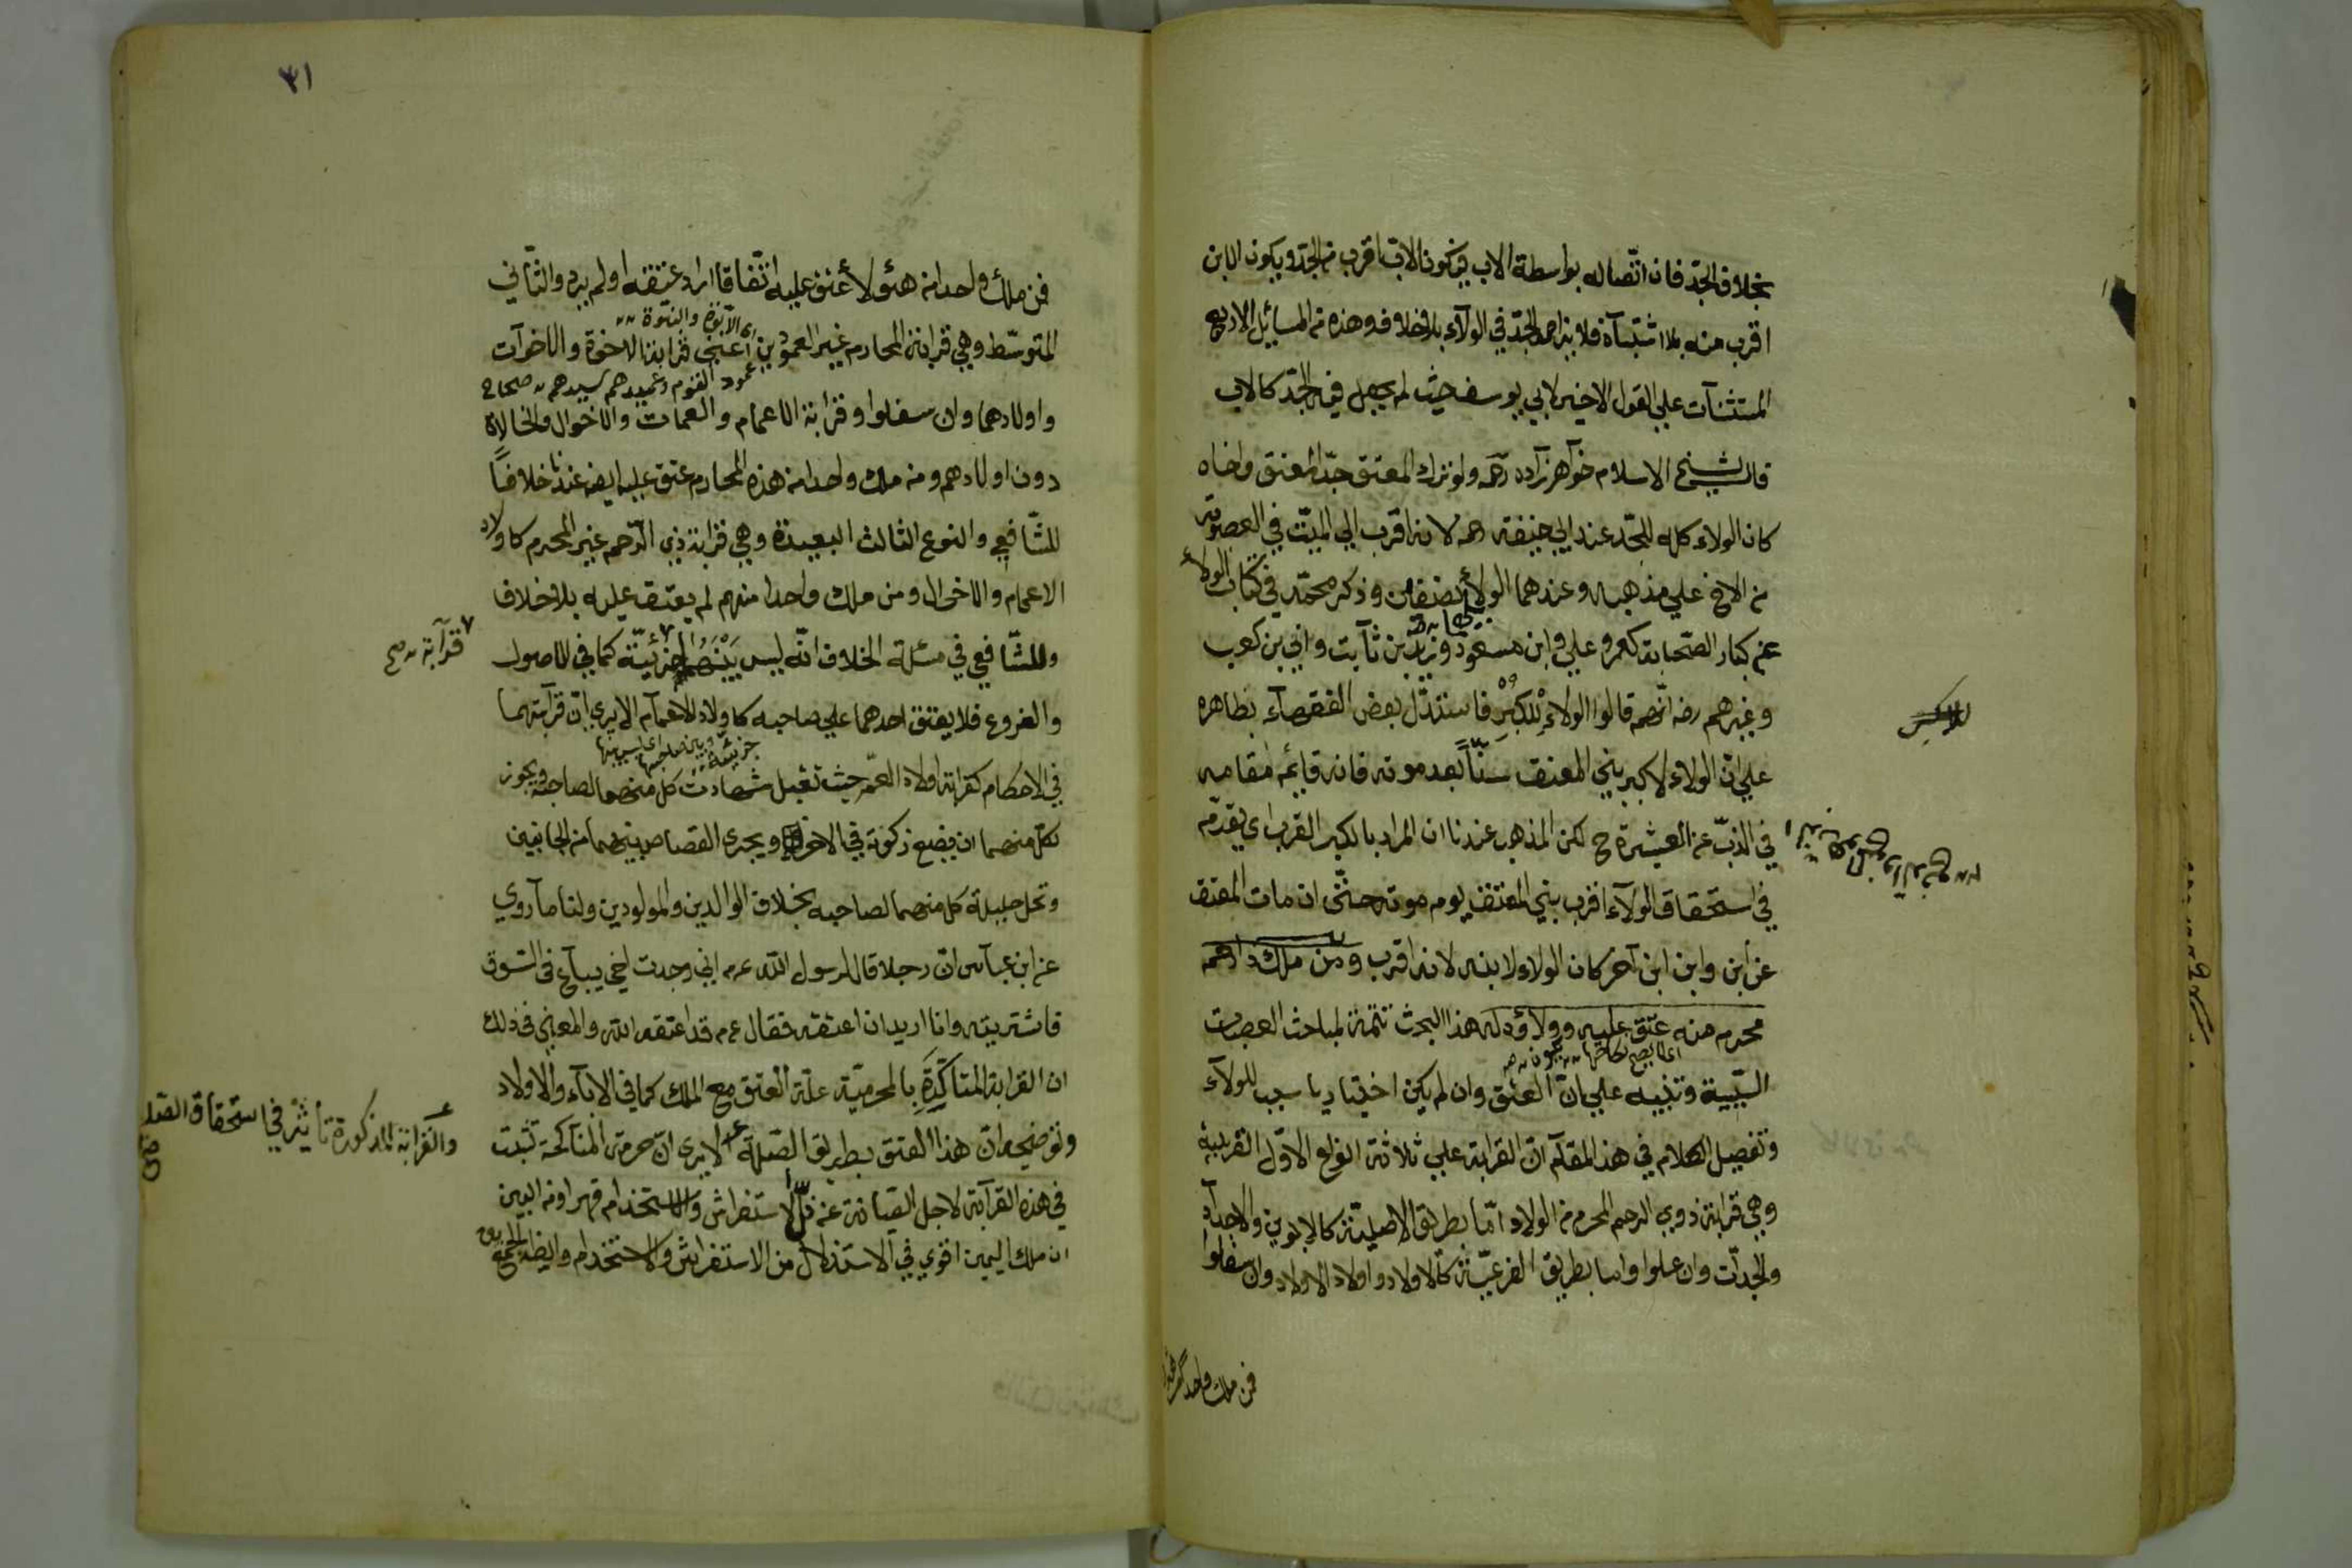 بخلاف الجدّ فان اتّصاله بواسطة الاب فيكون الاب اقرب من الجدّ ويكون الابن
اقرب منه بلا اشتباه فلا يزاحم الجدّ في الولآء بلا خلاف وهذه من المسائل الاربع
المستثنات علي القول الاخير لابي يوسف حيث لم يجعل فيه الجدّ كالاب
قال شيخ الاسلام خواهر زاده رحمه ولو ترك المعتق جدّ المعتق واخاه
كان الولاء كله للجدّ عند ابي حنيفة رحمه لانه اقرب الي الميّت في العصوبة
من الاخ علي مذهبه وعندهما الولاء نصفان وذكر محمّد في كتاب الولاء
عن كبار الصّحابة كعمر وعلي وابن مسعود وزيد بن ثآبت وابي بن كعب
وغيرهم رضه انّهم قالوا الولاء للكُبْرِ فاستدلّ بعض الفقهآء بظاهره
للاكبر
علي انّ الولاء لاكبر بني المعتق سنّاً بعد موته فانه قائم مقامه
في الذبّ عن العشيرة ح لكن المذهب عندنا ان المراد بالكبر القرب اي يقدّم
في استحقاق الولآء اقرب بني المعتق يوم موته حتّى ان مات المعتق
عن ابن وابن ابن آخر كان الولاء لابنه لانه اقرب ومن ملك ذا رحم
محرم منه عتق عليه وولاؤه له هذا البحث تتمة لمباحث العصبات
السّببية وتنبيه علي انّ العتق وان لم يكن اختياريا سبب للولآء
وتفصيل الكلام في هذا المقآم انّ القرابة علي ثلاثة انواع الاوّل القريبة
وهي قرابة ذوي الرحم المحرم من الولاد امّا بطريق الاصليّة كالابوين والاجدآد
والجدّات وان علوا واما بطريق الفرعيّة كآلاولاد واولاد الاولاد وان سفلوا
فمن ملك واحدا من هؤلا
٣١
فمن ملك واحدا من هؤلاء عتق عليه اتّفاقا اراد عتقه او لم يرد والثّاني
اي الابوّة والبنوّة
المتوسّط وهي قرابة المحارم غير العمودين اعني قرابة الاخوة والاخوات
عمود القوم وعميدهم سيدهم صحاح
واولادهما وان سفلوا وقرابة الاعمام والعمات والاخوال والخالاة
دون اولادهم ومن ملك واحدا من هذه المحارم عتق عليه ايضه عندنا خلافاً
للشّافعي والنوع الثالث البعيدة وهي قرابة ذي الرّحم غير المحرم كاولاد
الاعمام والاخوال ومن ملك واحدا منهم لم يعتق عليه بلا خلاف
وللشّافعي في مسئلة الخلاف انّه ليس بينهما جزئيّة كما في الاصول
قرآبة صح
والفروع فلا يعتق احدهما علي صاحبه كاولاد الاعمآم الا يري انّ قرآبتهما
في الاحكام كقرابة اولاد العمّ حيث تقبل شهادت كل منهما لصاحبه ويجوز
لكل منهما ان يضع زكوته في الاخر ويجري القصاص بينهما من الجانبين
وتحل حليلة كل منهما لصاحبه بخلاف الوالدين والمولودين ولنا مآ روي
عن ابن عبآس انّ رجلا قال لرسول اللّه عم اني وجدت اخي يبآع في السّوق
فاشتريته وانا اريد ان اعتقه فقال عم قد اعتقه اللّه والمعني في ذلك
ان القرابة المتاكّدَةِ بالمحرميّة علّة العتق مع الملك كما في الابآء والاولاد
وتوضيحه انّ هذا العتق بطريق الصّلة الا يري انّ حرمة المناكحة تثبت
والقرابة المذكورة تأثير في استحقاق الصلة صح
في هذه القرآبة لاجل الصّيانة عن ذلّ الاستفراش والاستخدام قهرا ومن البين
ان ملك اليمين اقوي في الاستذلال من الاستفراش والاستخدام وايضه الجمع